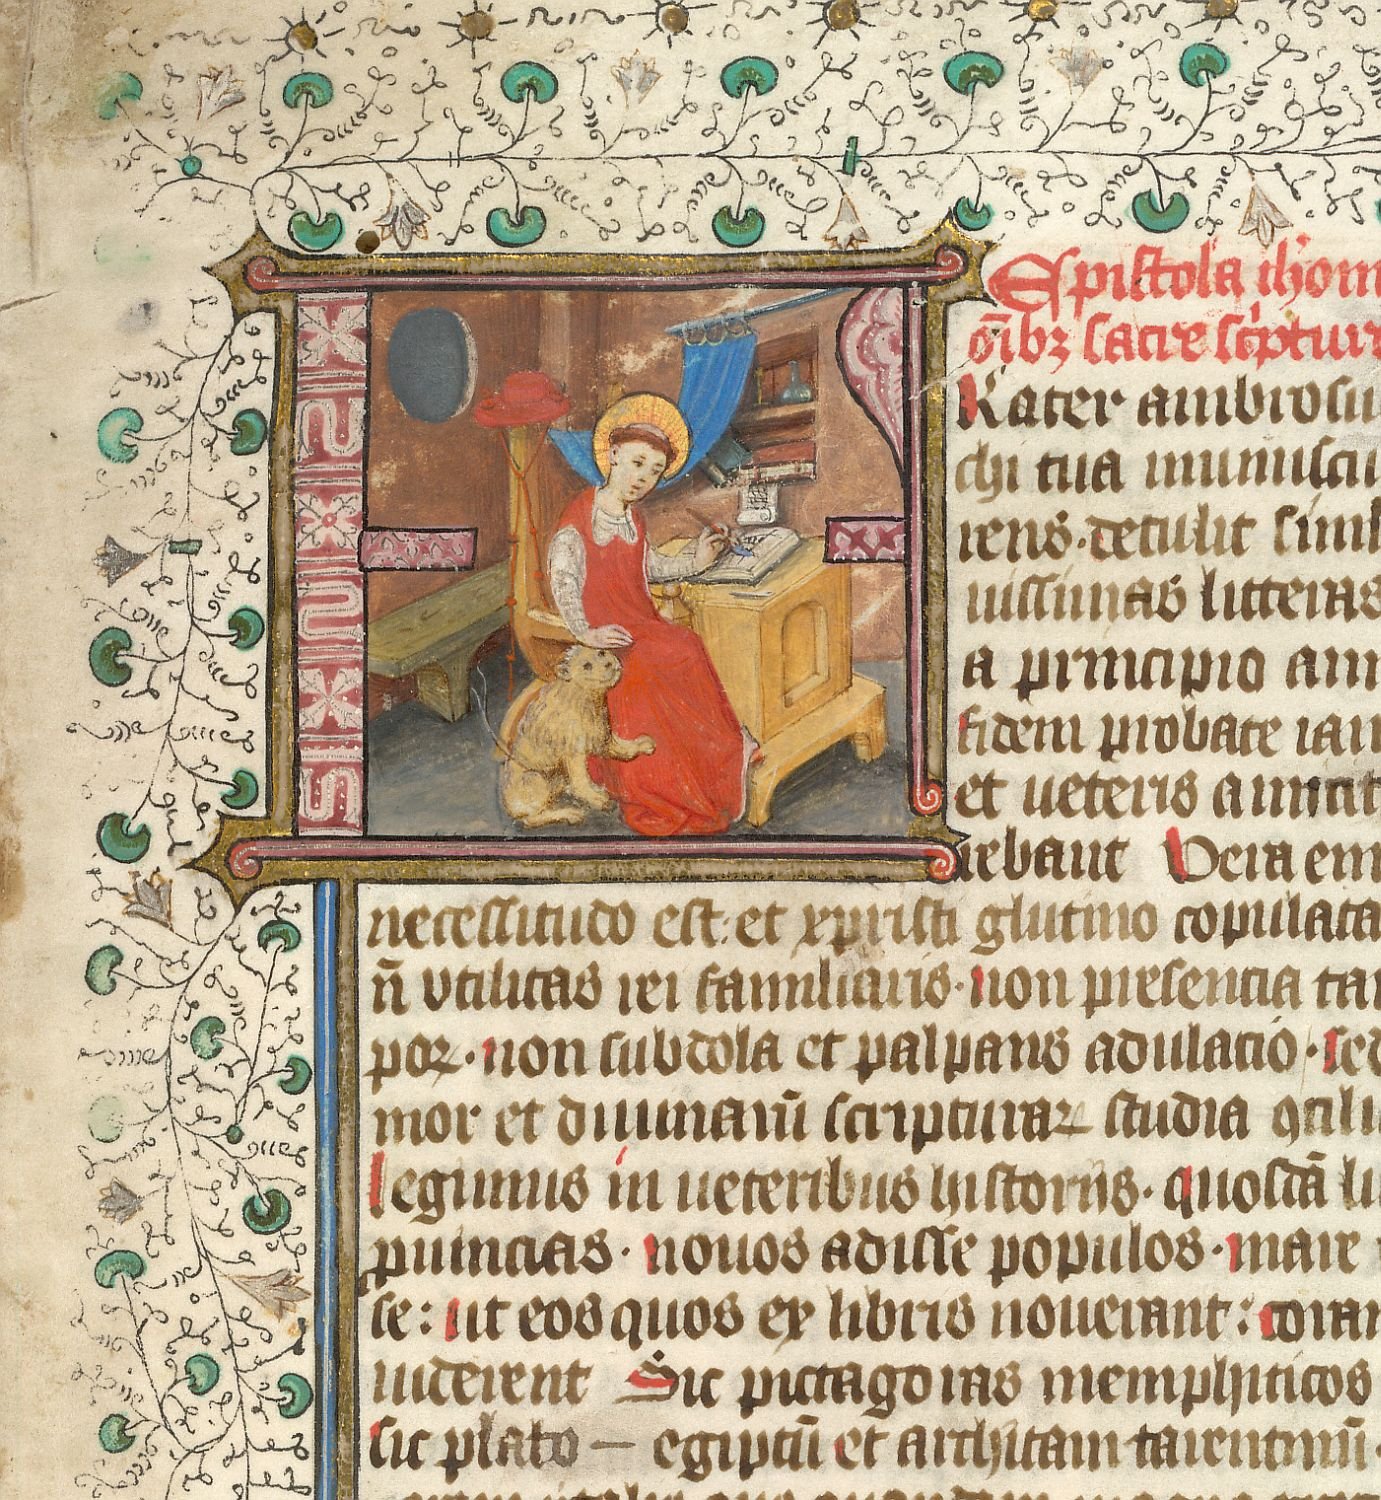 Epistola ihom
o̅ibꝫ sacre sc'pture
Rater ambrosiu
chi tua munuscu
rens· detulit simu
uissimas litteras
a principio ami
fidem probate iam
et ueteris amicit
rebant Vera em
necessitudo est: et xpristi glutino copulata
n̅ vtilitas rei familiaris· non presencia tan
poꝝ· non subdola et palpans adulacio· sed
mor et diuinaru̅ scripturaꝝ studia ꝯcili
legimus in ueteribus historijs· quosda̅ lu
puincias· nouos adisse populos· mare
se: ut eos quos ex libris nouerant: coram
uiderent Sic pictagoras memphiticos
sic plato — egiptu̅ et architam tarentinu̅·